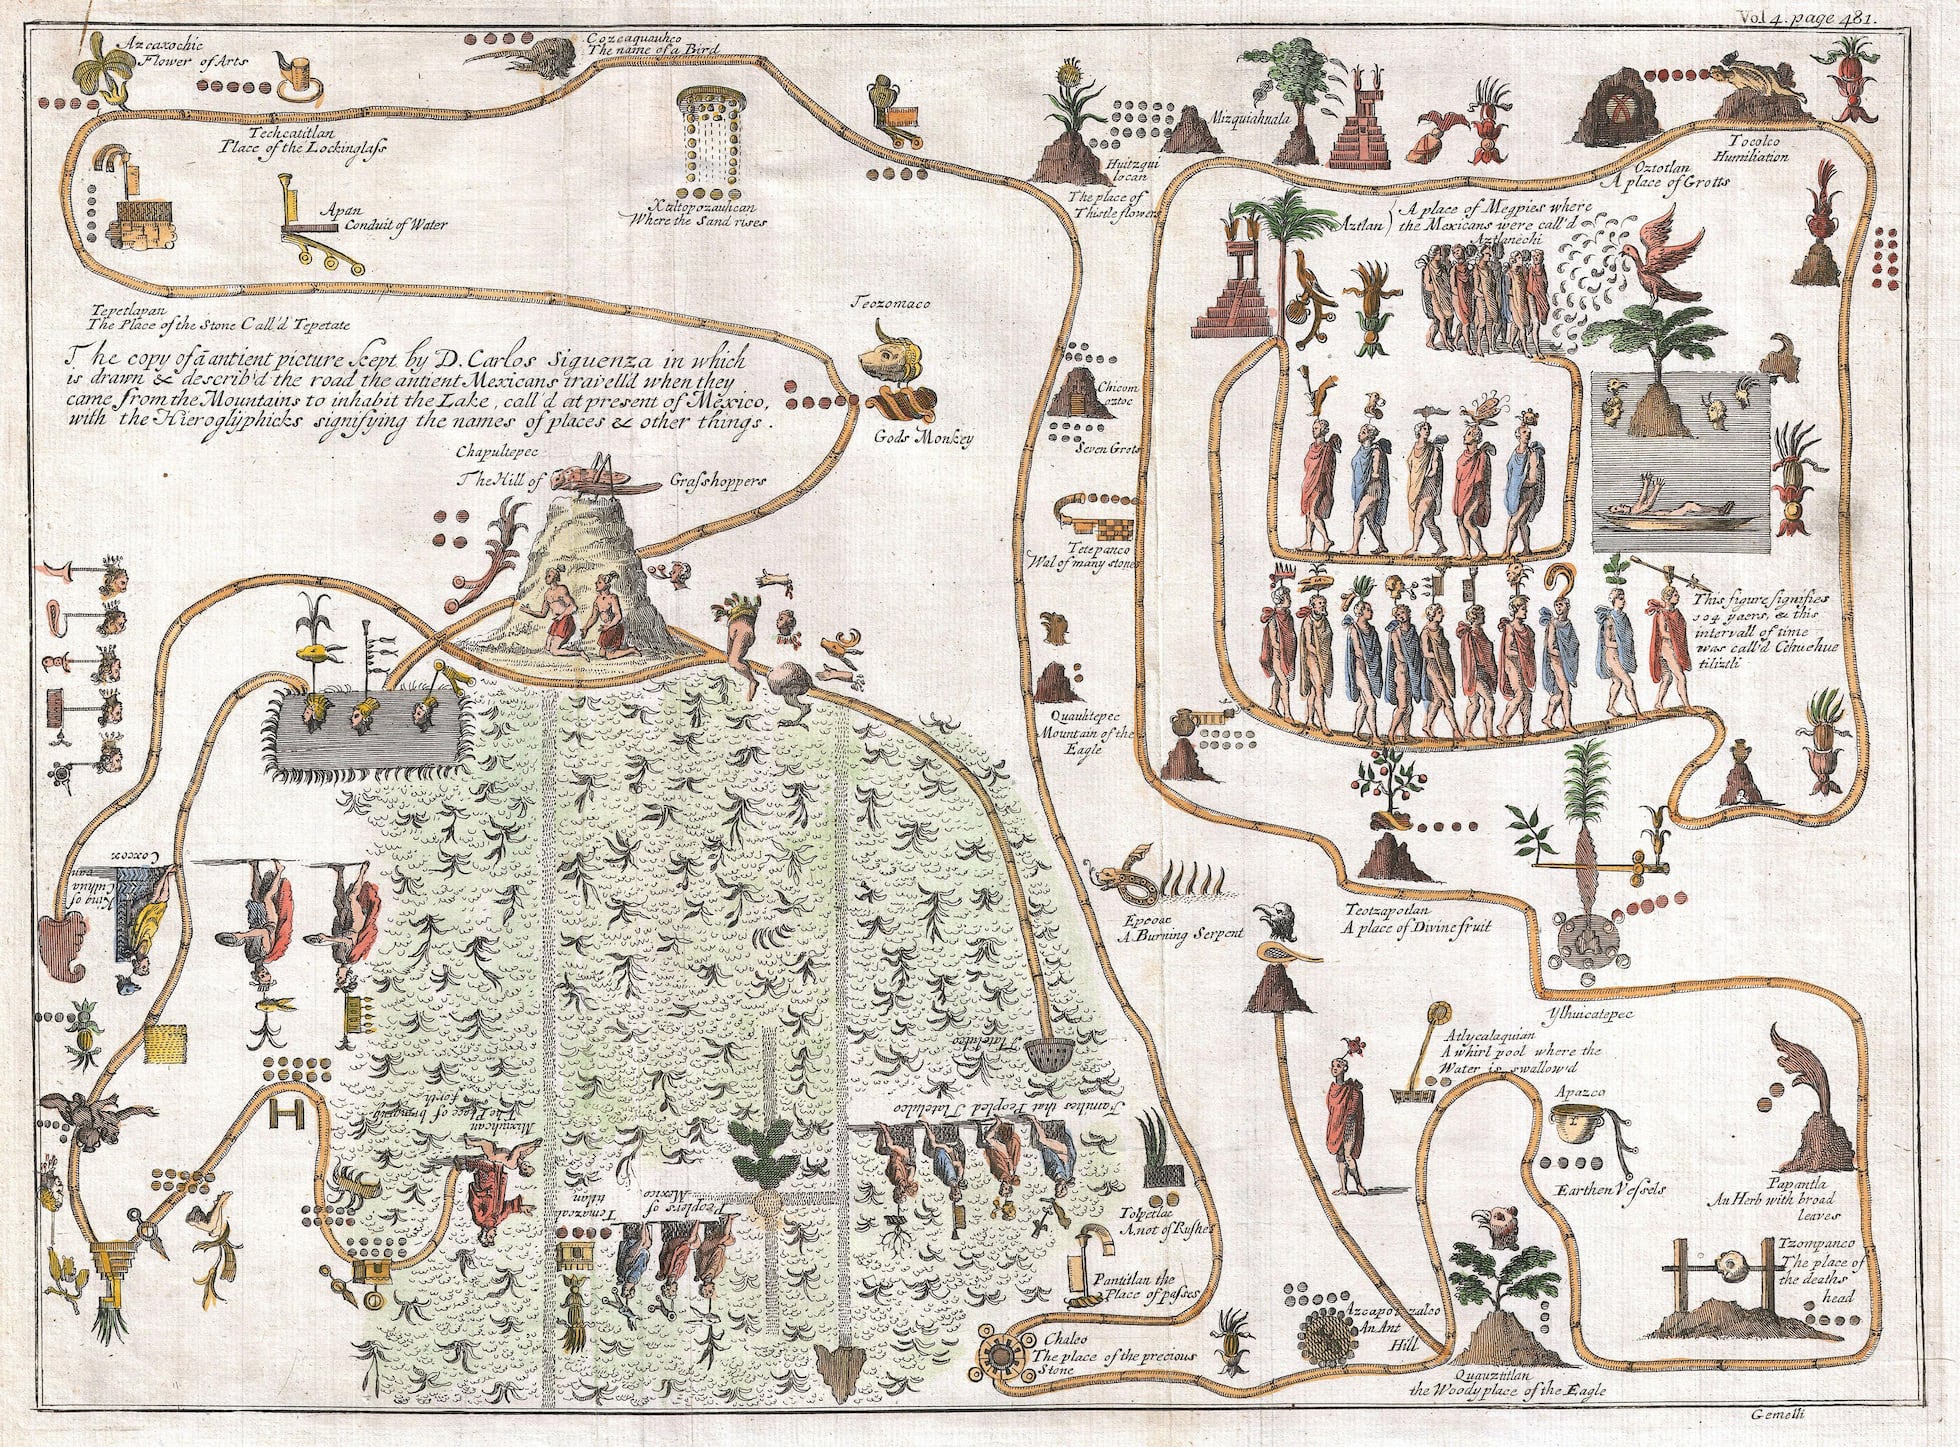 Vol 4. page 481.
Azcaxochic
Flower of Arts
Cozcaquauhco
The name of a Bird
Techcatitlan
Place of the Lockinglass
Apan
Conduit of Water
Xaltopozauhcan
Where the Sand rises
Huitzqui
locan
The place of
Thistle flowers
Mizquiahuala
Oztotlan
A place of Grotts
Tocolco
Humiliation
Aztlan
A place of Megpies where
the Mexicans were call'd
Aztlanechi
Tepetlapan
The Place of the Stone Call'd Tepetate
Teozomaco
Gods Monkey
The copy of a antient picture kept by D. Carlos Siguenza in which
is drawn & describ'd the road the antient Mexicans travell'd when they
came from the Mountains to inhabit the Lake, call'd at present of Mexico,
with the Hieroglyphicks signifying the names of places & other things.
Chapultepec
The Hill of Grasshoppers
Chicom
oztoc
Seven Grots
Tetepanco
Wal of many stones
Quauhtepec
Mountain of the
Eagle
This figure signifies
104 yaers, & this
intervall of time
was call'd Cehuehue
tiliztli
Epcoac
A Burning Serpent
Teotzapotlan
A place of Divine fruit
Ylhuicatepec
Atlycalaquian
A whirl pool where the
Water is swallow'd
Apazco
Earthen Vessels
Papantla
An Herb with broad
leaves
Tzompanco
The place of
the deaths
head
Coxcox
King of
Culhua
can
Tlatelulco
Families that Peopled Tlatelulco
Mixiuhcan
The Place of bringing
forth
Peoplers of
Mexico
Temazcal
titlan
Tolpetlac
A not of Rushes
Pantitlan the
Place of passes
Chalco
The place of the precious
Stone
Azcapotzalco
An Ant
Hill
Quauztitlan
the Woody place of the Eagle
Gemelli